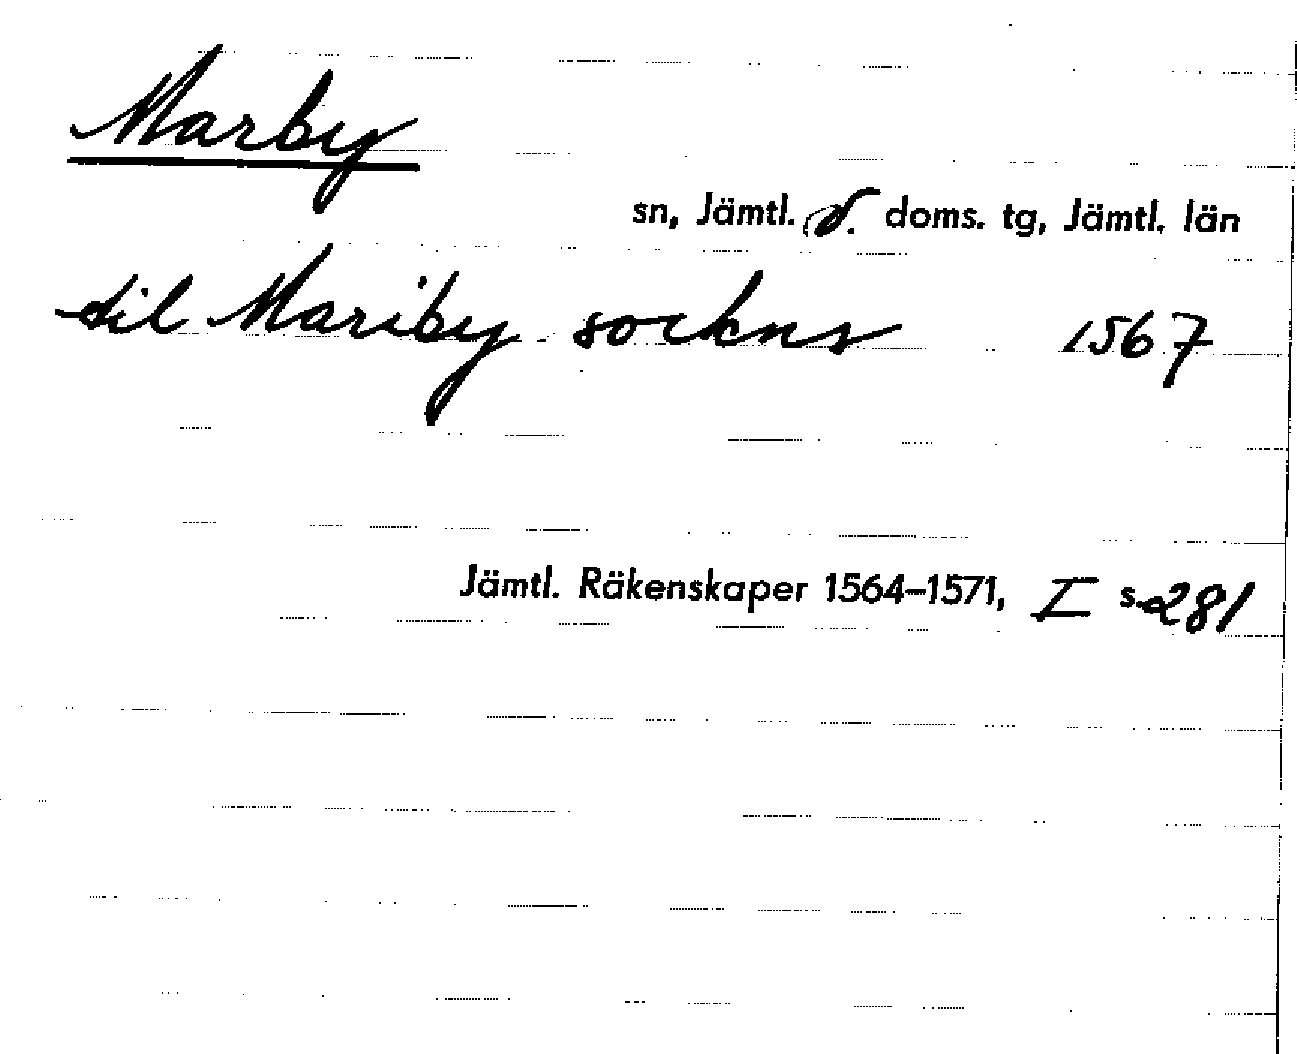 Marby
sn, Jämtl. v. doms. tg, Jämtl. län
til Mariby sockns 1567
Jämtl. Räkenskaper 1564–1571, I s. 281